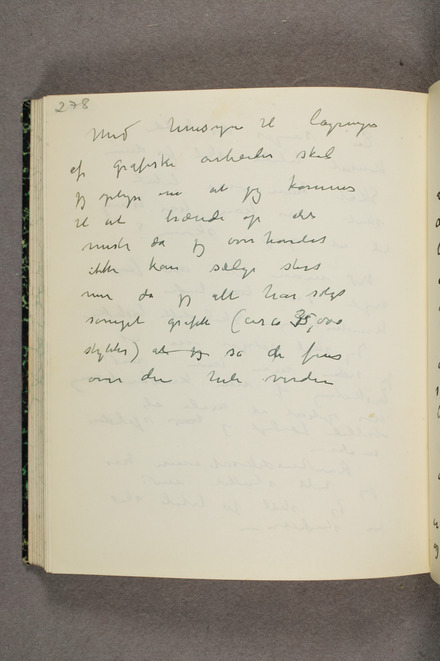 278
Med hensyn til lagringen
af grafiske arbeider skal
jeg oplyse om at jeg kommer
til at brænde op det
meste da jeg overhovedet
ikke kan sælge stort
mer da jeg alt har solgt
saameget grafik (circa 35,000
stykker) at jeg sa de fins
over den hele verden